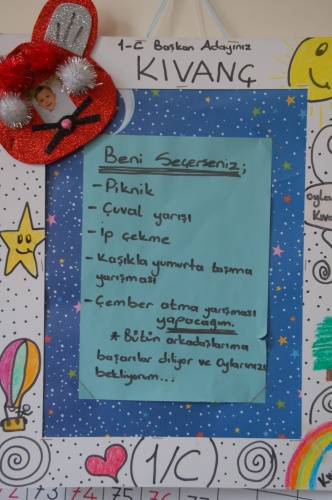 1-C Başkan Adayınız
KIVANÇ
Beni Seçerseniz;
- Piknik
- Çuval yarışı
- İp çekme
- Kaşıkla yumurta taşıma
yarışması
- Çember atma yarışması
yapacağım.
* Bütün arkadaşlarıma
başarılar diliyor ve Oylarınızı
bekliyorum...
1/C